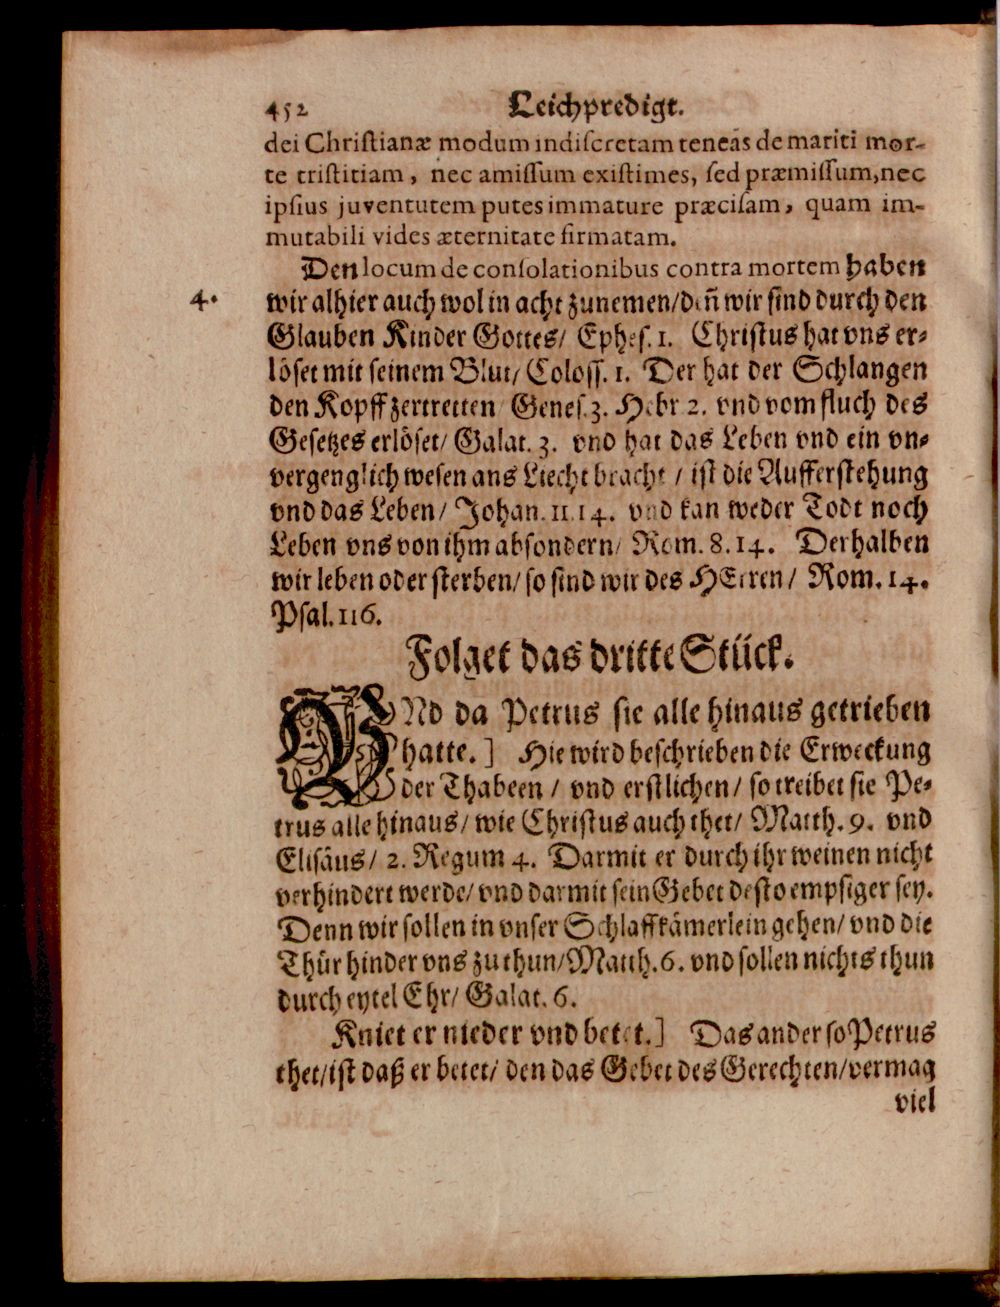 452 Leichpredigt.
dei Christianæ modum indiscretam teneas de mariti mor-
te tristitiam, nec amissum existimes, sed præmissum, nec
ipsius juventutem putes immature præcisam, quam im-
mutabili vides æternitate firmatam.
Den locum de consolationibus contra mortem haben
4. wir alhier auch wol in acht zunemen/deñ wir sind durch den
Glauben Kinder Gottes/ Ephes. 1. Christus hat vns er-
löset mit seinem Blut/ Coloss. 1. Der hat der Schlangen
den Kopff zertretten Genes. 3. Hebr 2. vnd vom fluch des
Gesetzes erlöset/ Galat. 3. vnd hat das Leben vnd ein vn-
vergenglich wesen ans Liecht bracht / ist die Aufferstehung
vnd das Leben/ Johan. 11.14. vnd kan weder Todt noch
Leben vns von ihm absondern/ Rom. 8.14. Derhalben
wir leben oder sterben/ so sind wir des HErren/ Rom. 14.
Psal. 116.
Folget das dritte Stück.
VNd da Petrus sie alle hinaus getrieben
hatte.] Hie wird beschrieben die Erweckung
der Thabeen / vnd erstlichen/ so treibet sie Pe-
trus alle hinaus/ wie Christus auch thet/ Matth. 9. vnd
Elisäus/ 2. Regum 4. Darmit er durch ihr weinen nicht
verhindert werde/ vnd darmit sein Gebet desto empsiger sey.
Denn wir sollen in vnser Schlaffkämerlein gehen/ vnd die
Thür hinder vns zuthun/Matth. 6. vnd sollen nichts thun
durch eytel Ehr/ Galat. 6.
Kniet er nieder vnd betet.] Das ander so Petrus
thet/ist daß er betet/ den das Gebet des Gerechten/vermag
viel